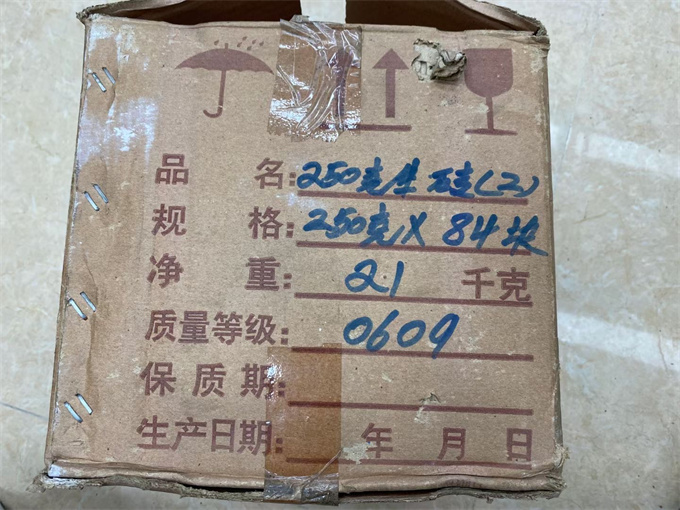 品名:250克生砖(2)
规格:250克X84块
净重:21千克
质量等级:0609
保质期:
生产日期: 年月日